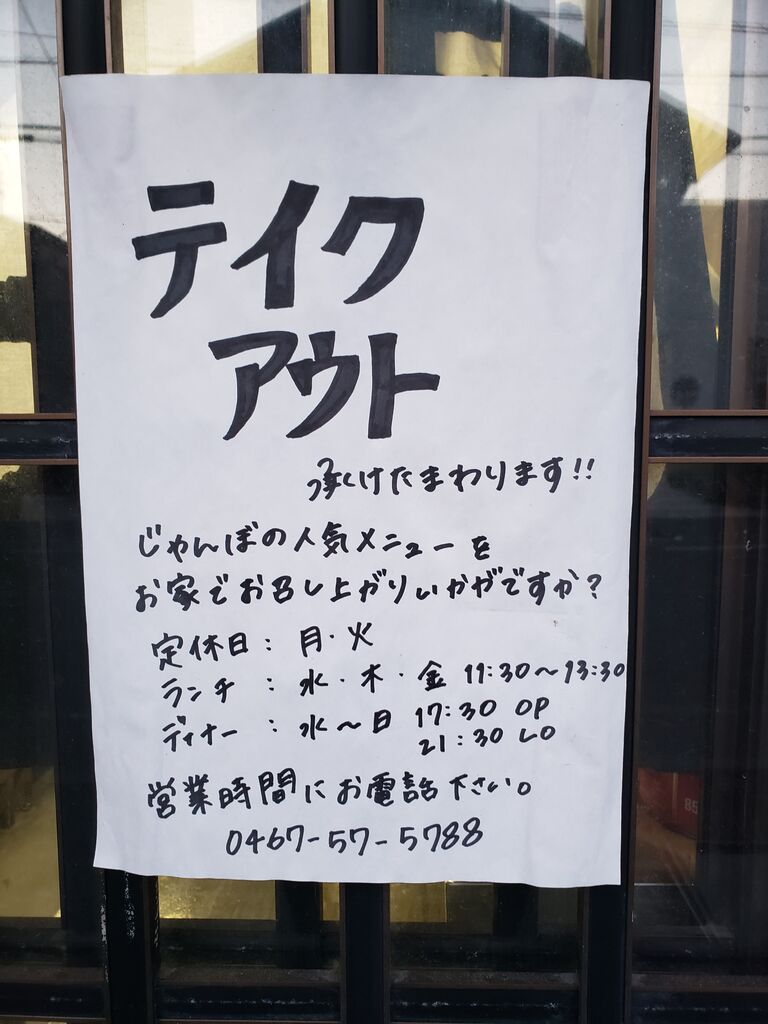 テイク
アウト
承けたまわります!!
じゃんぼの人気メニューを
お家でお召し上がりいかがですか?
定休日: 月・火
ランチ : 水・木・金 11:30~13:30
ディナー : 水~日 17:30 OP
21:30 LO
営業時間にお電話下さい。
0467-57-5788
85